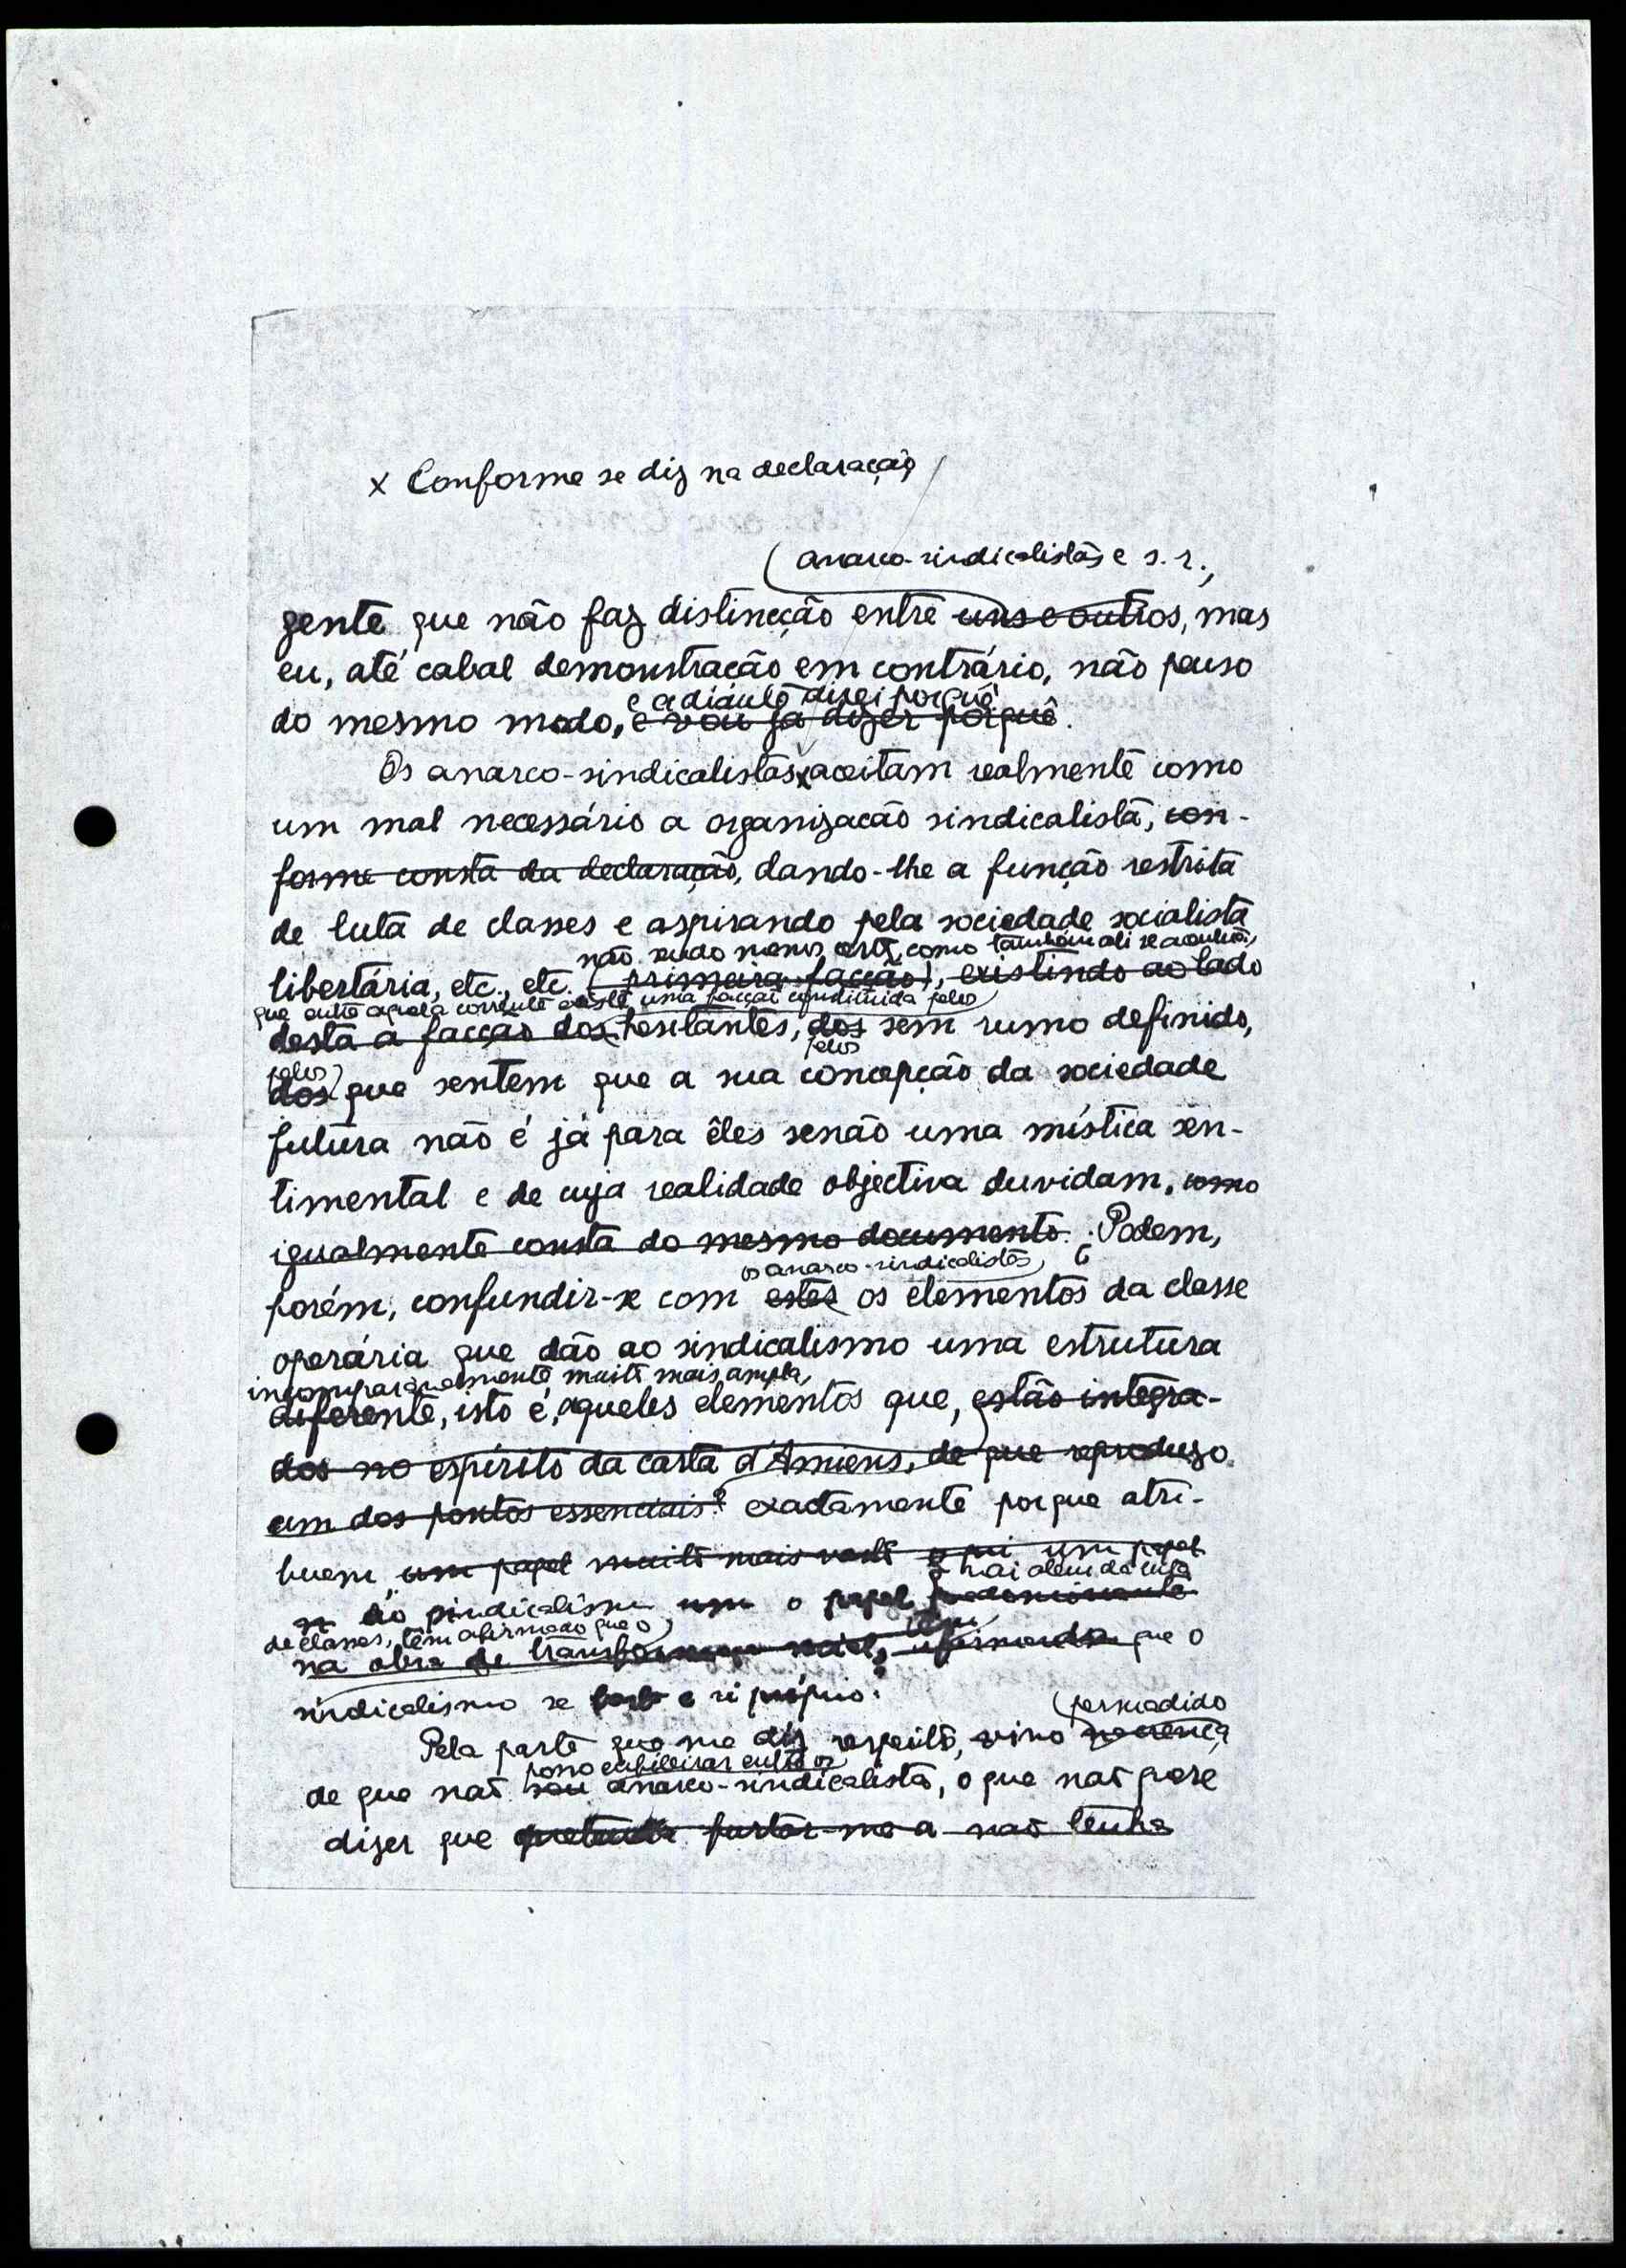 x Conforme se diz na declaração,
anarco-sindicalistas e s. r.,
gente que não faz distincção entre uns e outros, mas
eu, até cabal demonstração em contrário, não penso
e adiante direi porquê
do mesmo modo, e vou já dizer porquê.
Os anarco-sindicalistas x aceitam realmente como
um mal necessário a organização sindicalista, con-
forme consta da declaração, dando-lhe a função restrita
de luta de classes e aspirando pela sociedade socialista
não sendo menos certo, como também ali se acentua,
libertária, etc., etc. (primeira facção), existindo ao lado
que entre aquela corrente existe uma facção constituída pelos
desta a facção dos hesitantes, dos sem rumo definido,
pelos
pelos
dos que sentem que a sua concepção da sociedade
futura não é já para êles senão uma mística sen-
timental e de cuja realidade objectiva duvidam, como
igualmente consta do mesmo documento. Podem,
os anarco-sindicalistas
porém, confundir-se com estes os elementos da classe
operária que dão ao sindicalismo uma estrutura
incomparavelmente muito mais ampla,
diferente, isto é, aqueles elementos que, estão integra-
dos no espírito da carta d'Amiens, de que reproduzo
um dos pontos essenciais? exactamente porque atri-
buem um papel muito mais vasto um papel
vai alem da luta
ao sindicalismo um o papel predominante
de classes, têm afirmado que o
têm
na obra de transformação social, afirmando que o
sindicalismo se basta a si próprio.
persuadido
Pela parte que me diz respeito, vivo na crença
posso enfileirar entre os
de que não sou anarco-sindicalista, o que não quere
dizer que pretenda furtar-me a não tenha